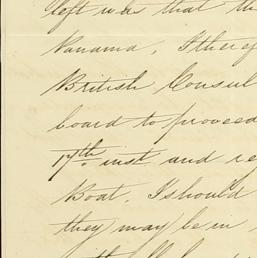 left was that the
Panama, I theref
British Consul
board to proceed
17th. inst and re
Boat. I should
they may be in